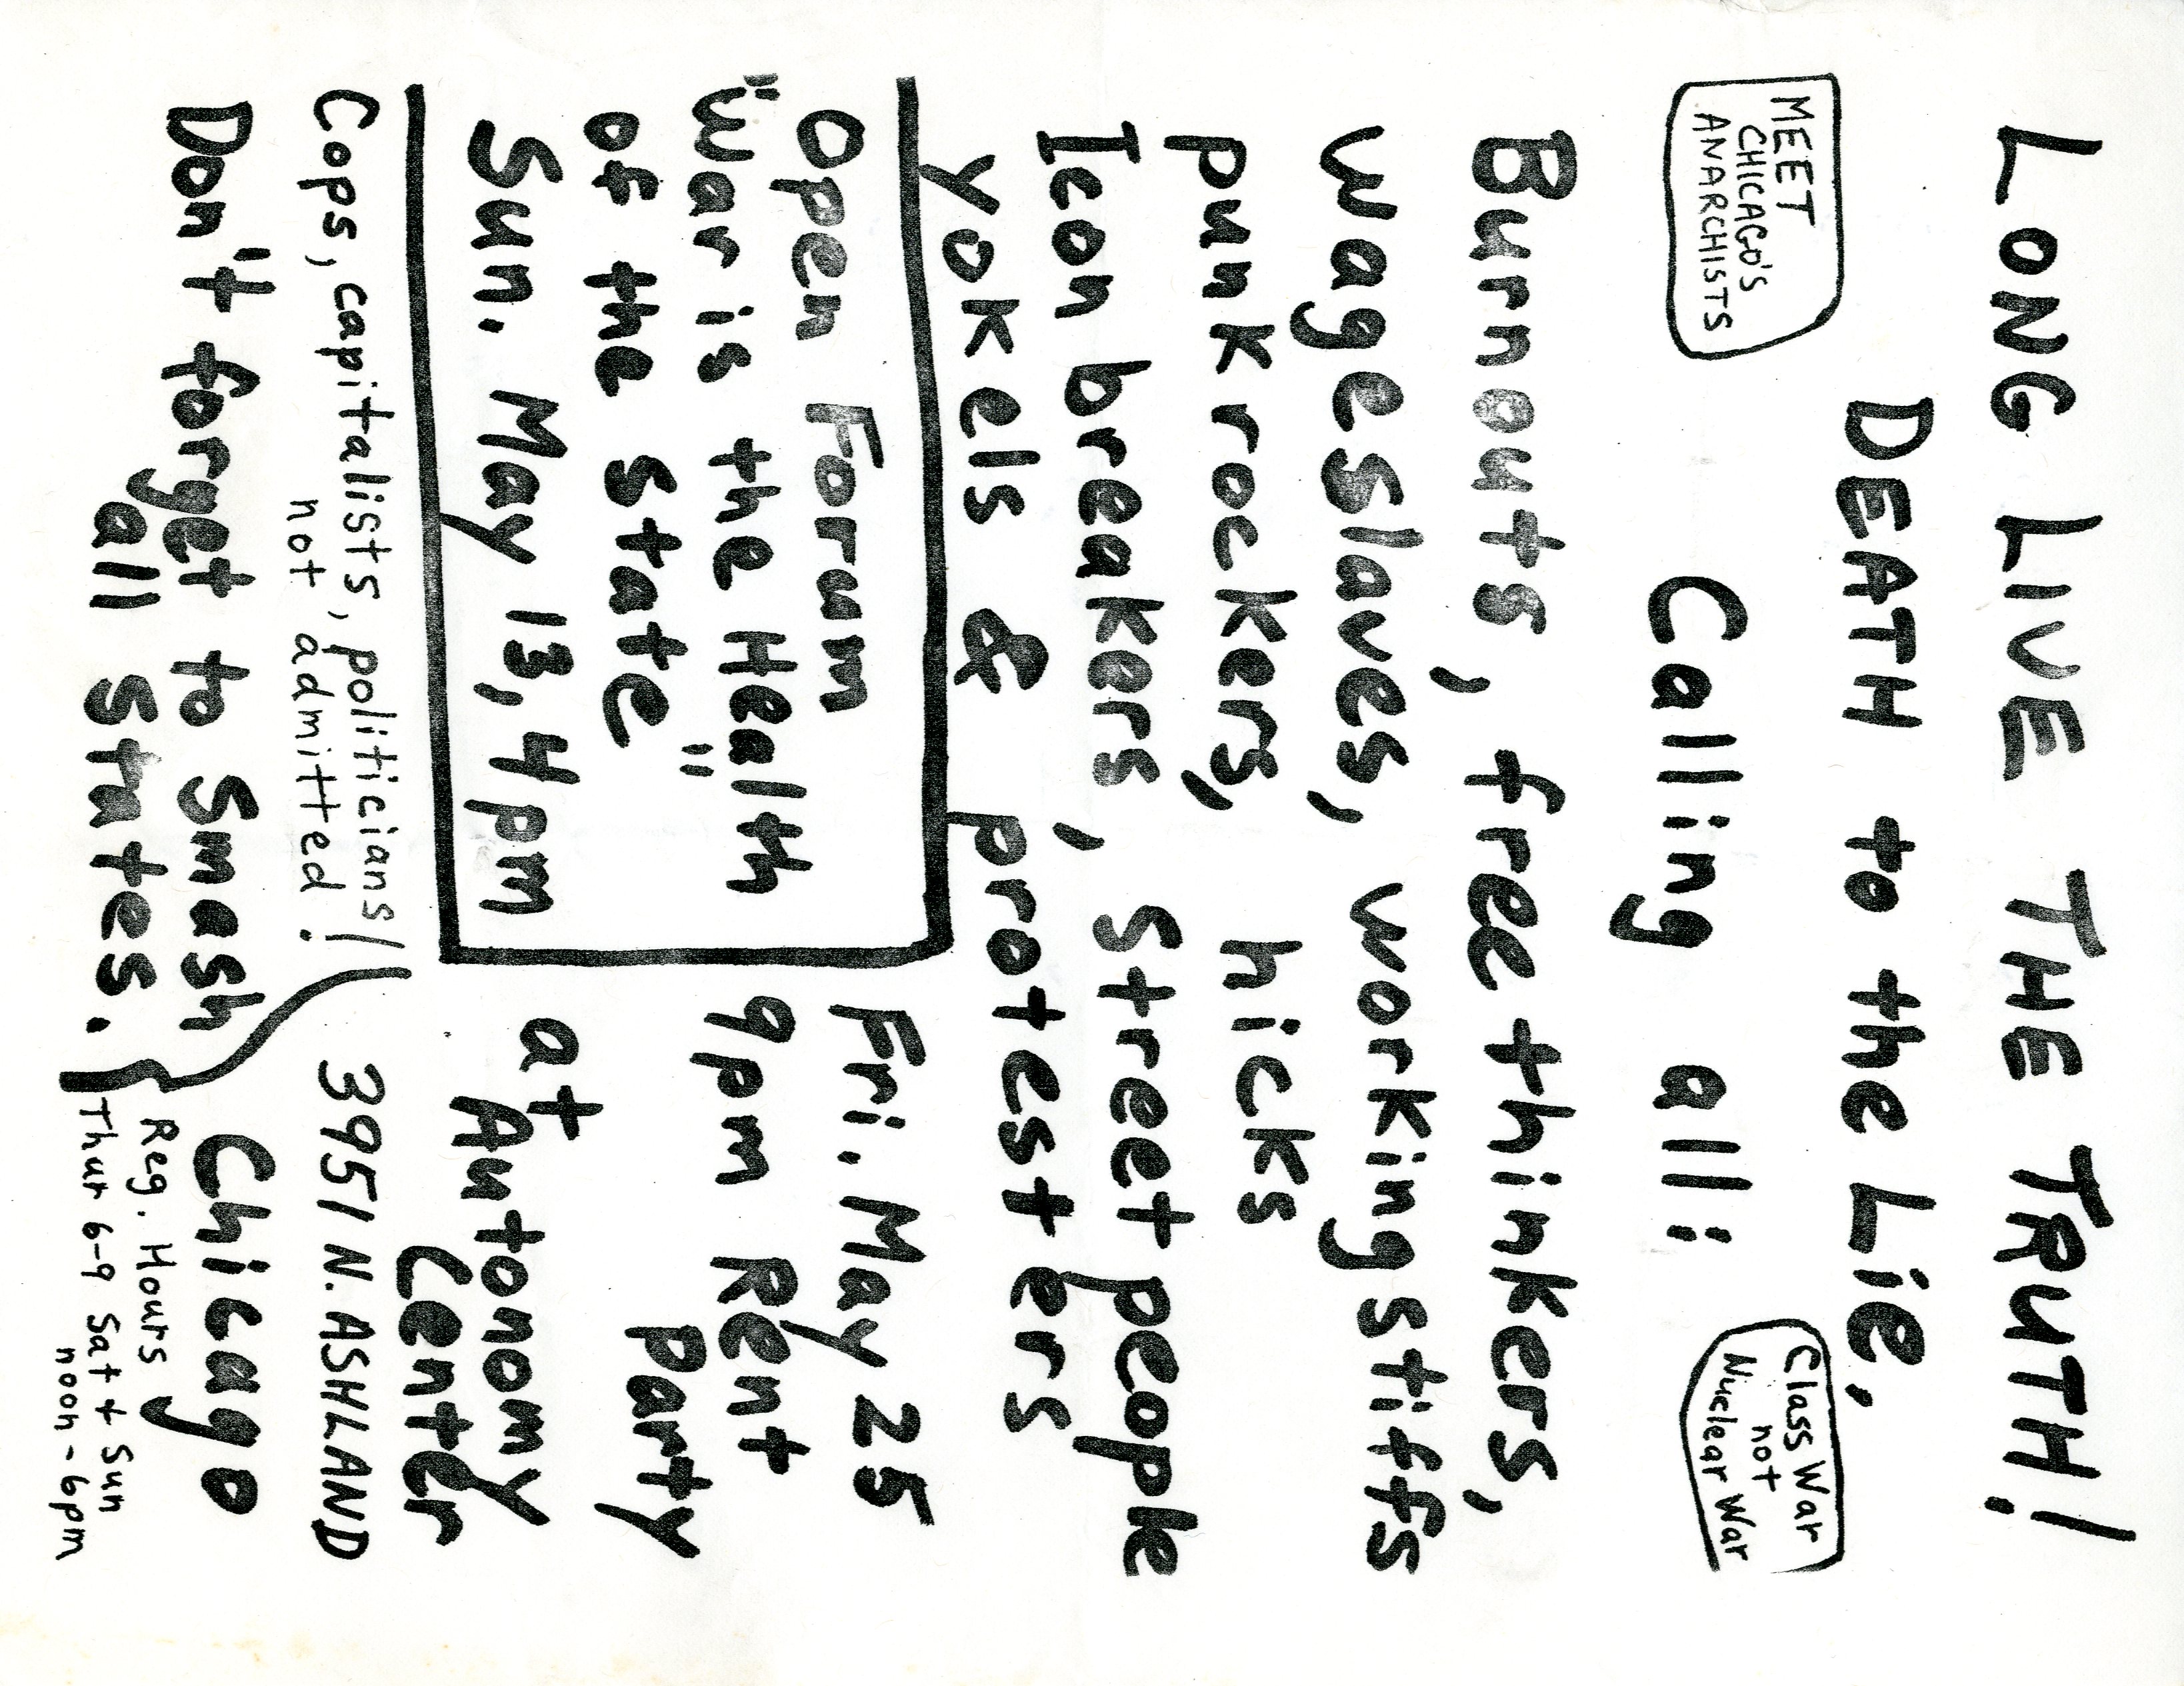 LONG LIVE THE TRUTH!
DEATH to the Lie.
MEET
CHICAGO'S
ANARCHISTS
Class War
not
Nuclear War
Calling all:
Burnouts, free thinkers,
wage slaves, working stiffs
punk rockers, hicks
Icon breakers, Street people
yokels & protesters
Open Forum
"War is the Health
of the State"
Sun. May 13, 4pm
Fri. May 25
9pm Rent
Party
at
Autonomy
Center
3951 N. ASHLAND
Chicago
Reg. Hours
Thur 6-9 Sat + Sun
noon - 6pm
Cops, capitalists, politicians
not admitted!
Don't forget to Smash
all States.